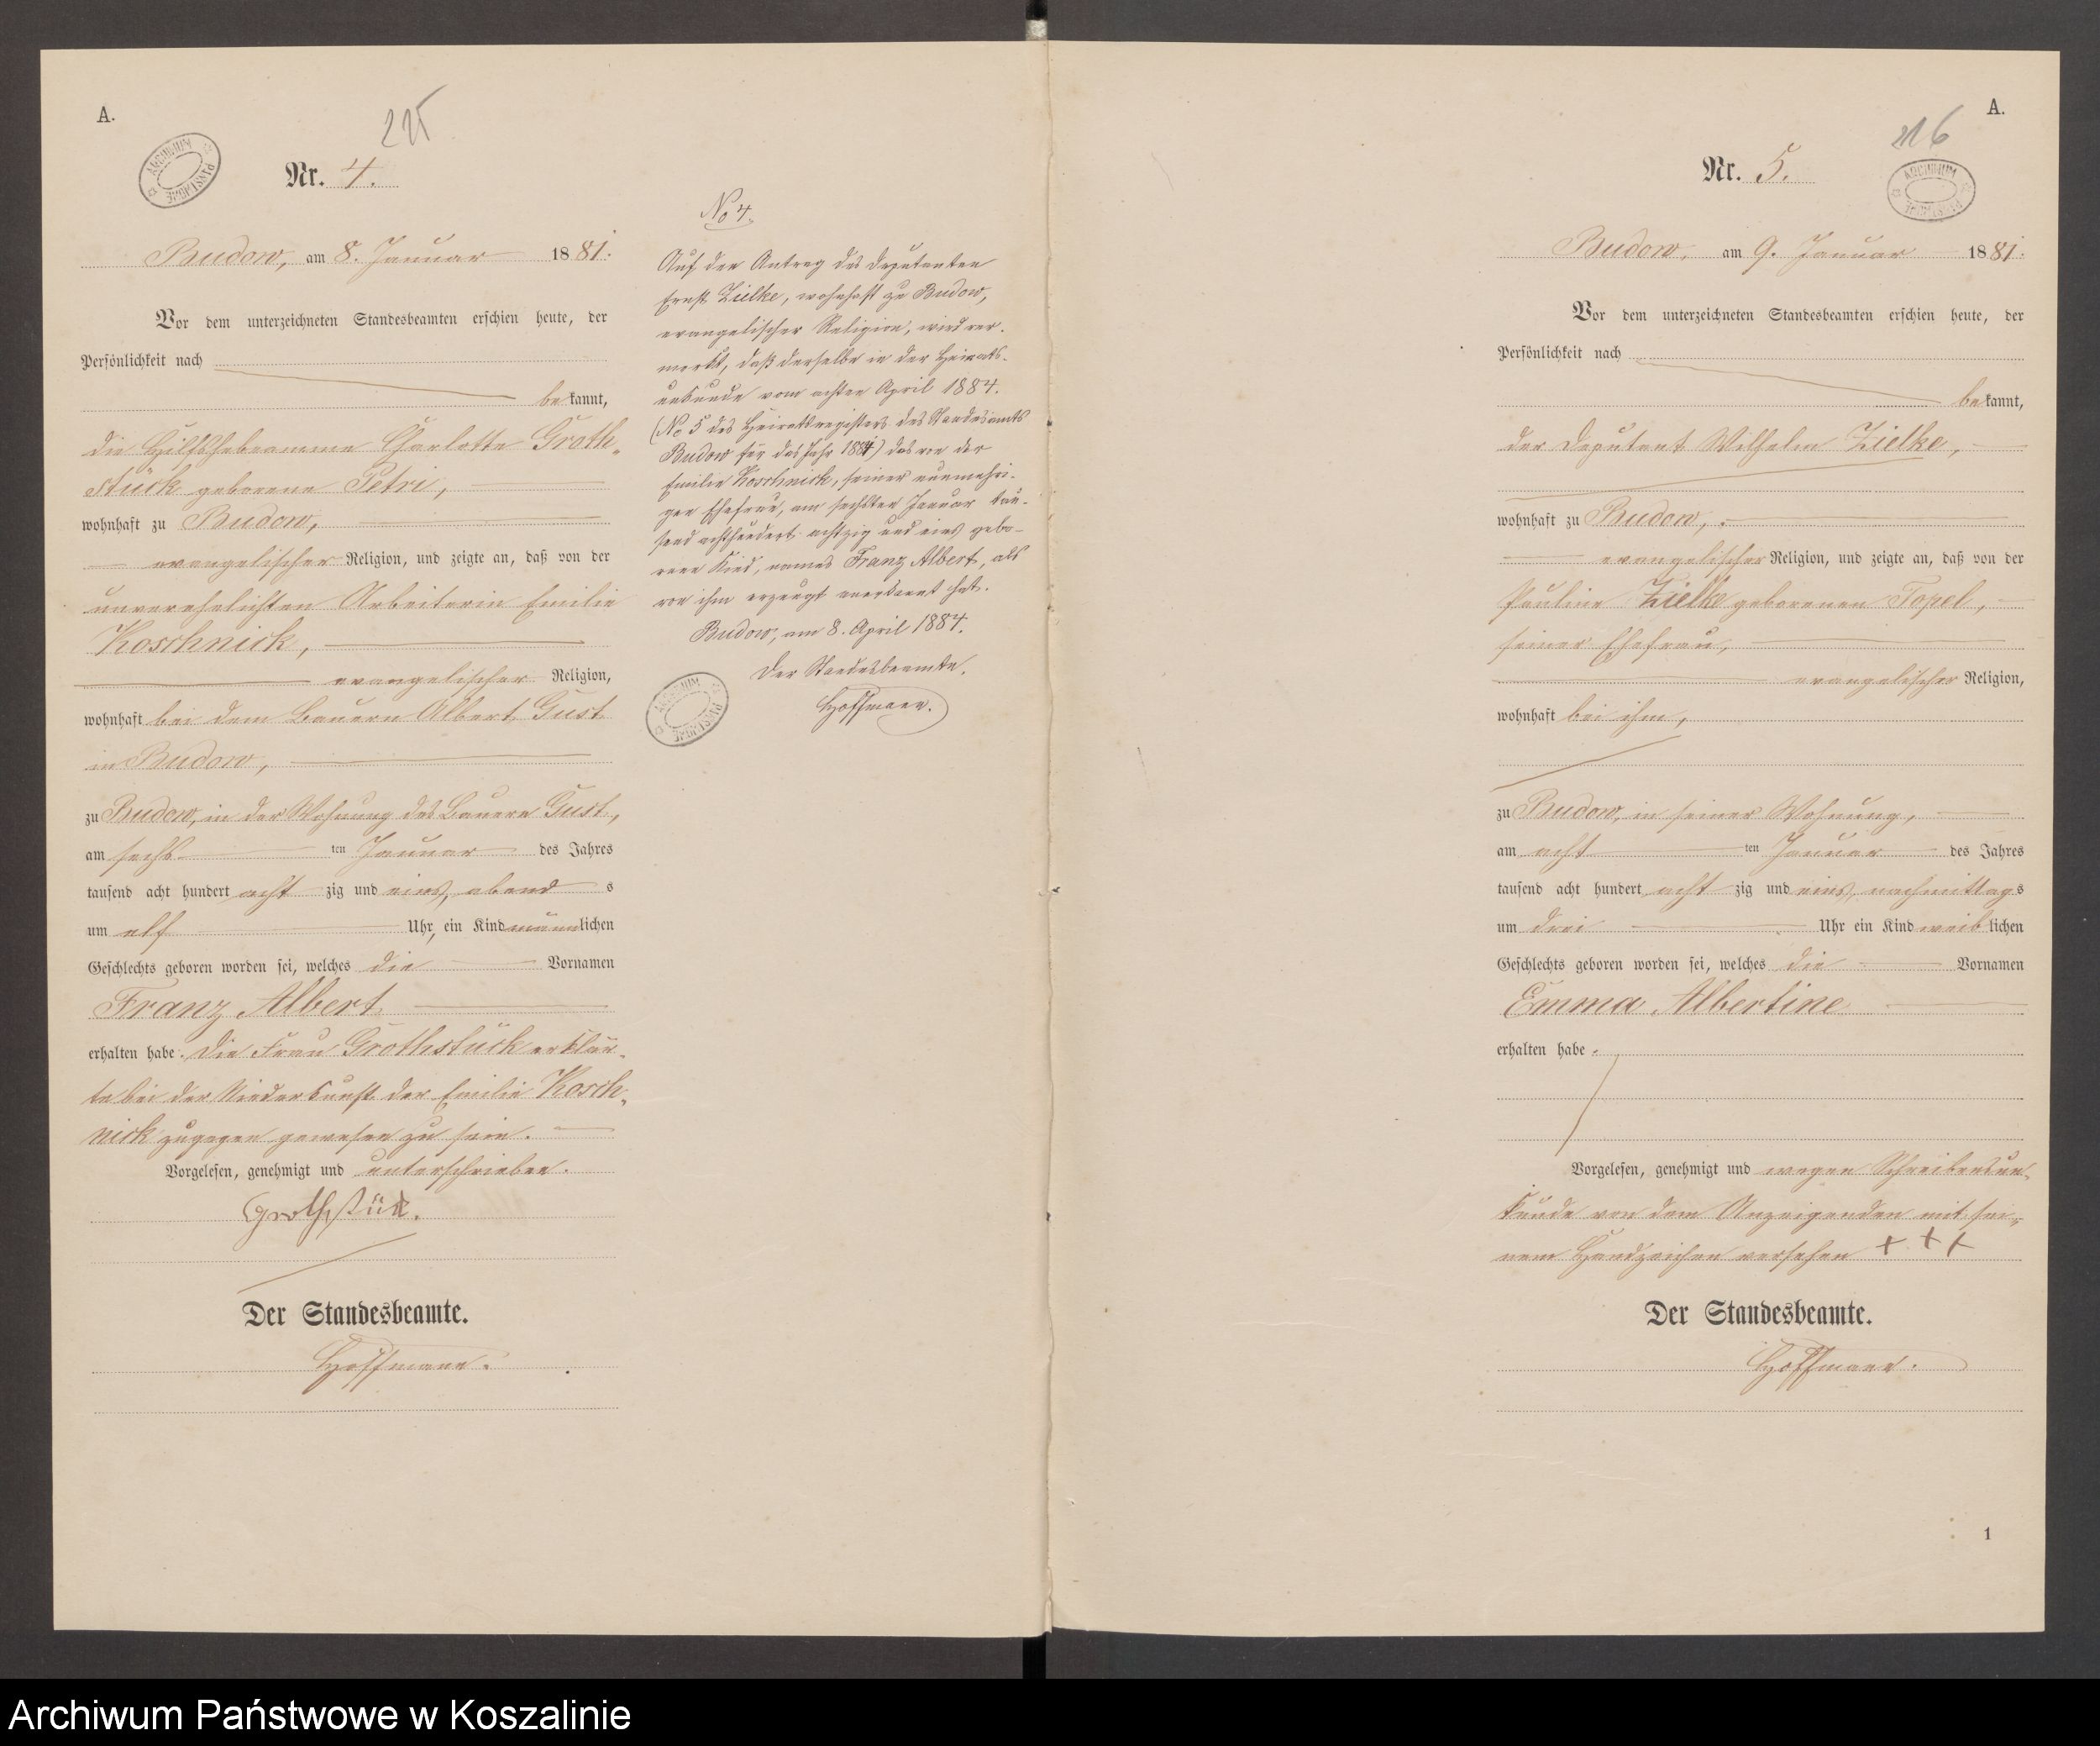 A.
225
ARCHIWUM PAŃSTWOWE
Nr. 4.
Budow, am 8. Januar 1881.
Vor dem unterzeichneten Standesbeamten erschien heute, der
Persönlichkeit nach
bekannt,
die Hilfshebeamme Charlotte Groth-
stück geborene Petri,
wohnhaft zu Budow,
evangelischer Religion, und zeigte an, daß von der
unverehelichten Arbeiterin Emilie
Koschnick,
evangelischer Religion,
wohnhaft bei dem Bauern Albert Gust
in Budow,
zu Budow, in der Wohnung des Bauern Gust,
am sechs ten Januar des Jahres
tausend acht hundert acht zig und eins, abend s
um elf Uhr, ein Kind männlichen
Geschlechts geboren worden sei, welches die Vornamen
Franz Albert
erhalten habe. Die Frau Grothstück erklär-
te bei der Niederkunft der Emilie Kosch-
nick zugegen gewesen zu sein.
Vorgelesen, genehmigt und unterschrieben.
Grothstück.
Der Standesbeamte.
Hoffmann.
No 4.
Auf den Antrag des Deputanten
Ernst Zielke, wohnhaft zu Budow,
evangelischer Religion, wird ver-
merkt, daß derselbe in der Heirats-
urkunde vom achten April 1884.
(No 5 des Heiratsregisters des Standesamts
Budow für das Jahr 1884) das von der
Emilie Koschnick, seiner nunmehri-
gen Ehefrau, am sechsten Januar tau-
send achthundert achtzig und eins gebo-
rene Kind, namens Franz Albert, als
von ihm erzeugt anerkannt hat.
Budow, am 8. April 1884.
Der Standesbeamte.
Hoffmann.
ARCHIWUM PAŃSTWOWE
A.
216
Nr. 5.
ARCHIWUM PAŃSTWOWE
Budow, am 9. Januar 1881.
Vor dem unterzeichneten Standesbeamten erschien heute, der
Persönlichkeit nach
bekannt,
der Deputant Wilhelm Zielke,
wohnhaft zu Budow,
evangelischer Religion, und zeigte an, daß von der
Pauline Zielke geborenen Topel,
seiner Ehefrau,
evangelischer Religion,
wohnhaft bei ihm,
zu Budow, in seiner Wohnung,
am acht ten Januar des Jahres
tausend acht hundert acht zig und eins, nachmittag s
um drei Uhr ein Kind weiblichen
Geschlechts geboren worden sei, welches die Vornamen
Emma Albertine
erhalten habe.
Vorgelesen, genehmigt und wegen Schreibensun-
kunde von dem Anzeigenden mit sei-
nem Handzeichen versehen + + +
Der Standesbeamte.
Hoffmann.
1
Archiwum Państwowe w Koszalinie